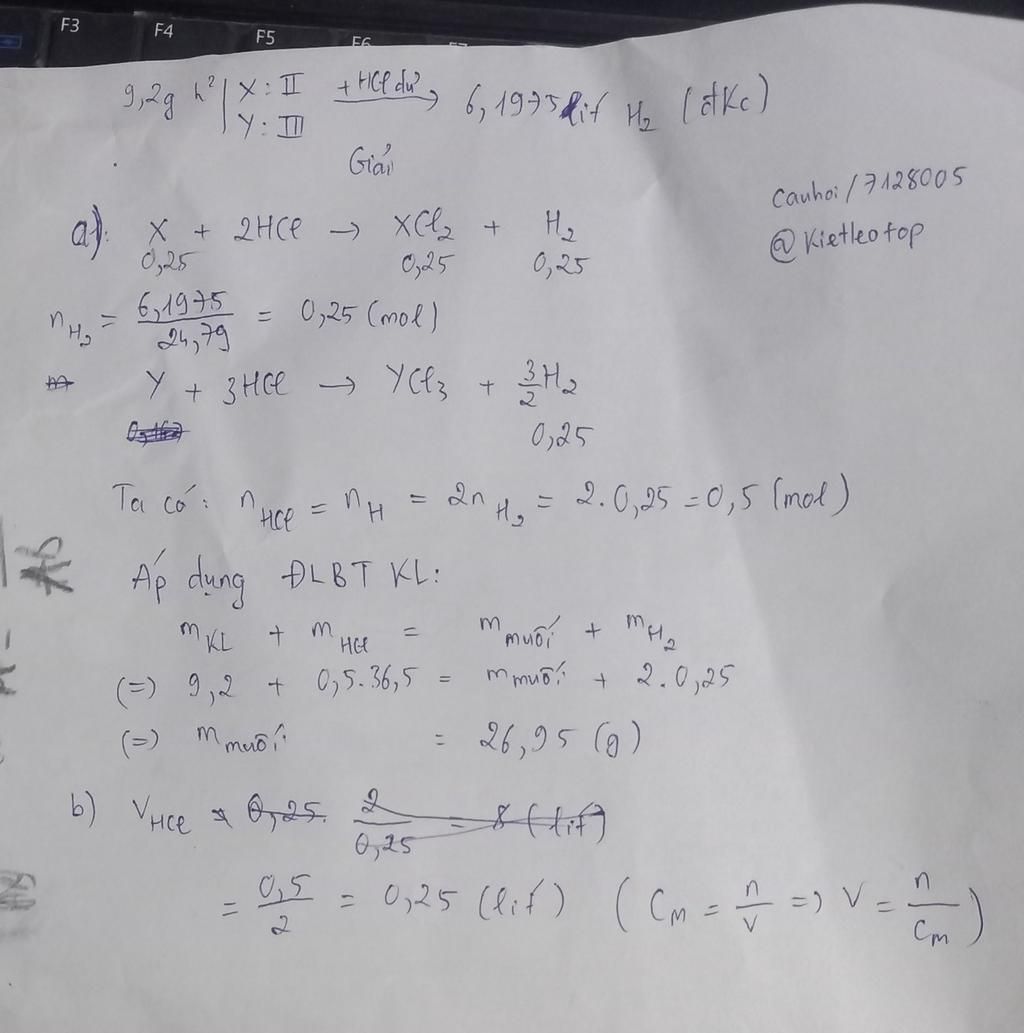 F3 F4 F5 F6 F7
9,2g h² | X: II
Y: III
+ HCl dư → 6,1975 lít H₂ (đKc)
Giải
Cauhoi/7128005
@Kietleotop
a) X + 2HCl → XCl₂ + H₂
0,25 0,25 0,25
n_H₂ = 6,1975/24,79 = 0,25 (mol)
Y + 3HCl → YCl₃ + 3/2 H₂
0,25
Ta có: n_HCl = n_H = 2n_H₂ = 2.0,25 = 0,5 (mol)
Áp dụng ĐLBT KL:
m_KL + m_HCl = m_muối + m_H₂
(=) 9,2 + 0,5.36,5 = m_muối + 2.0,25
(=) m_muối = 26,95 (g)
b) V_HCl 0,25. 2/0,25 = 8 (lít)
= 0,5/2 = 0,25 (lít) (C_M = n/V => V = n/C_M)